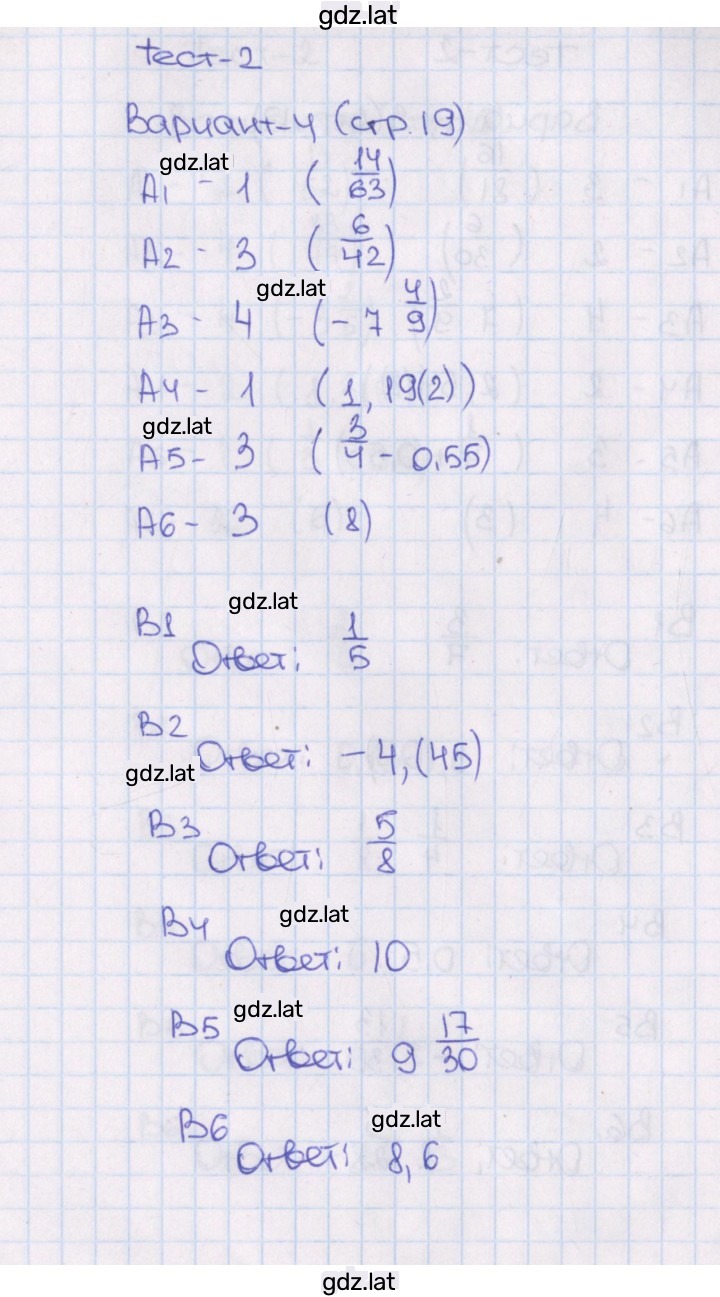 gdz.lat
Тест-2
Вариант-4 (стр.19)
gdz.lat
А1 - 1 (14/63)
А2 - 3 (6/42)
gdz.lat
А3 - 4 (-7 4/9)
А4 - 1 (1,19(2))
gdz.lat
А5 - 3 (3/4 - 0,55)
А6 - 3 (8)
gdz.lat
В1
Ответ: 1/5
В2
Ответ: -4,(45)
gdz.lat
В3
Ответ: 5/8
gdz.lat
В4
Ответ: 10
gdz.lat
В5
Ответ: 9 17/30
gdz.lat
В6
Ответ: 8,6
gdz.lat